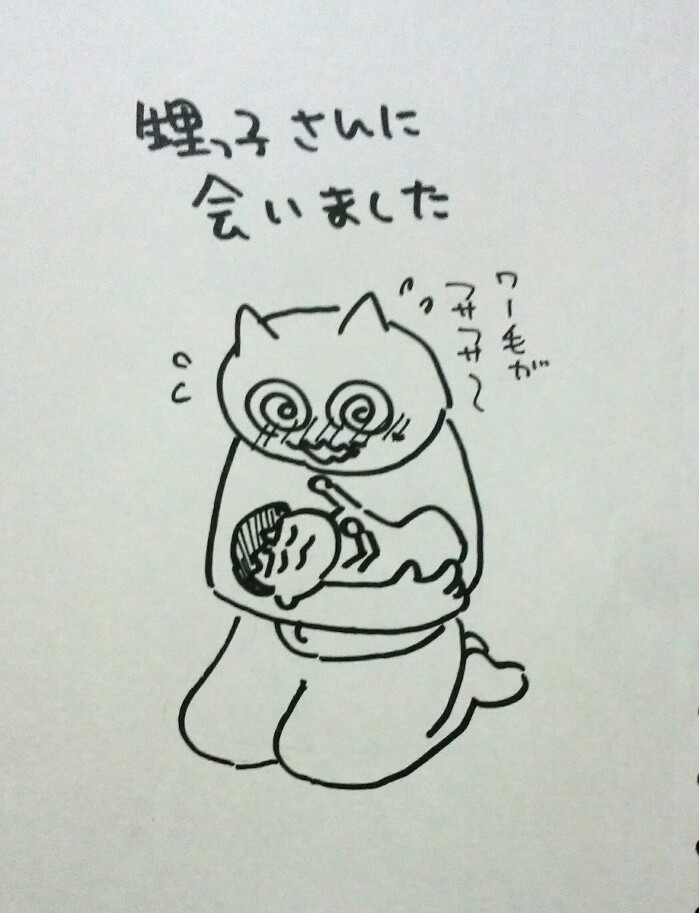 甥っ子さんに
会いました
ワー毛が
フサフサ〜